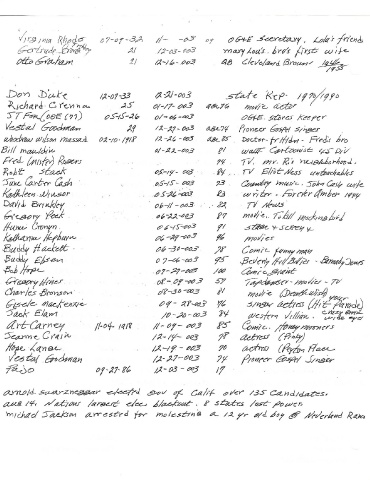 Virginia Rhodes 07-09-32 11- -003 OG&E Secretary, Lola's friends
Gertrude 21 12-03-003 Mary Lou's bro's first wife
Otto Graham 21 12-16-003 QB Cleveland Browns
Don Duke 12-09-33 2-21-003 State Rep. 1970/1990
Richard Crenna 25 01-17-003 age 76 movie actor
JT Fox (OBE 77) 05-15-26 01-06-003 OG&E stores keeper
Vestal Goodman 29 12-27-003 age 74 Pioneer Gospel singer
Woodrow Wilson Massad 02-10-1918 12-26-003 age 85 Doctor-Fred's bro
Bill Mauldin 01-22-003 81 WWII Cartoonist
Fred (mister) Rogers 74 TV. mr. Rogers neighborhood.
Rob't Stack 05-14-003 84 TV Elliot Ness untouchables
June Carter Cash 05-15-003 73 Country music. John Cash wife
Kathleen Winsor 05-26-003 83 writer. Forever Amber 1944
David Brinkley 06-11-003 82 TV News
Gregory Peck 06-22-003 87 movie. To kill mockingbird
Hume Cronyn 06-15-003 91 stage & screen
Katharine Hepburn 06-29-003 96 movies
Buddy Hackett 06-30-003 78 Comic funny man
Buddy Ebsen 07-06-003 95 Beverly Hill Billies - Barnaby Jones
Bob Hope 07-27-003 100 Comic
Gregory Hines 08-09-003 57 Tapdancer-movies-TV
Charles Bronson 08-30-003 81 movie (Death Wish)
Gisele MacKenzie 09-28-003 76 singer actress (Your Hit Parade)
Jack Elam 10-20-003 84 western villian. crazy eyes
Art Carney 11-04-1918 11-09-003 85 Comic. Honeymooners
Jeanne Crain 12-14-003 78 actress (Pinky)
Hope Lange 12-19-003 70 actress (Peyton Place
Vestal Goodman 12-27-003 74 Pioneer Gospel Singer
Fajo 09-27-86 12-03-003 17
arnold swarznegar elected gov of Calif over 135 candidates.
aug 14. Nations largest elec blackout. 8 states lost power
michael Jackson arrested for molesting a 12 yr old boy @ Neverland Ran